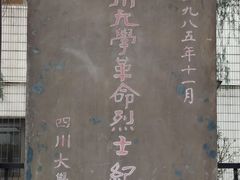 九八五年十一月
川大學革命烈士紀
四川大學